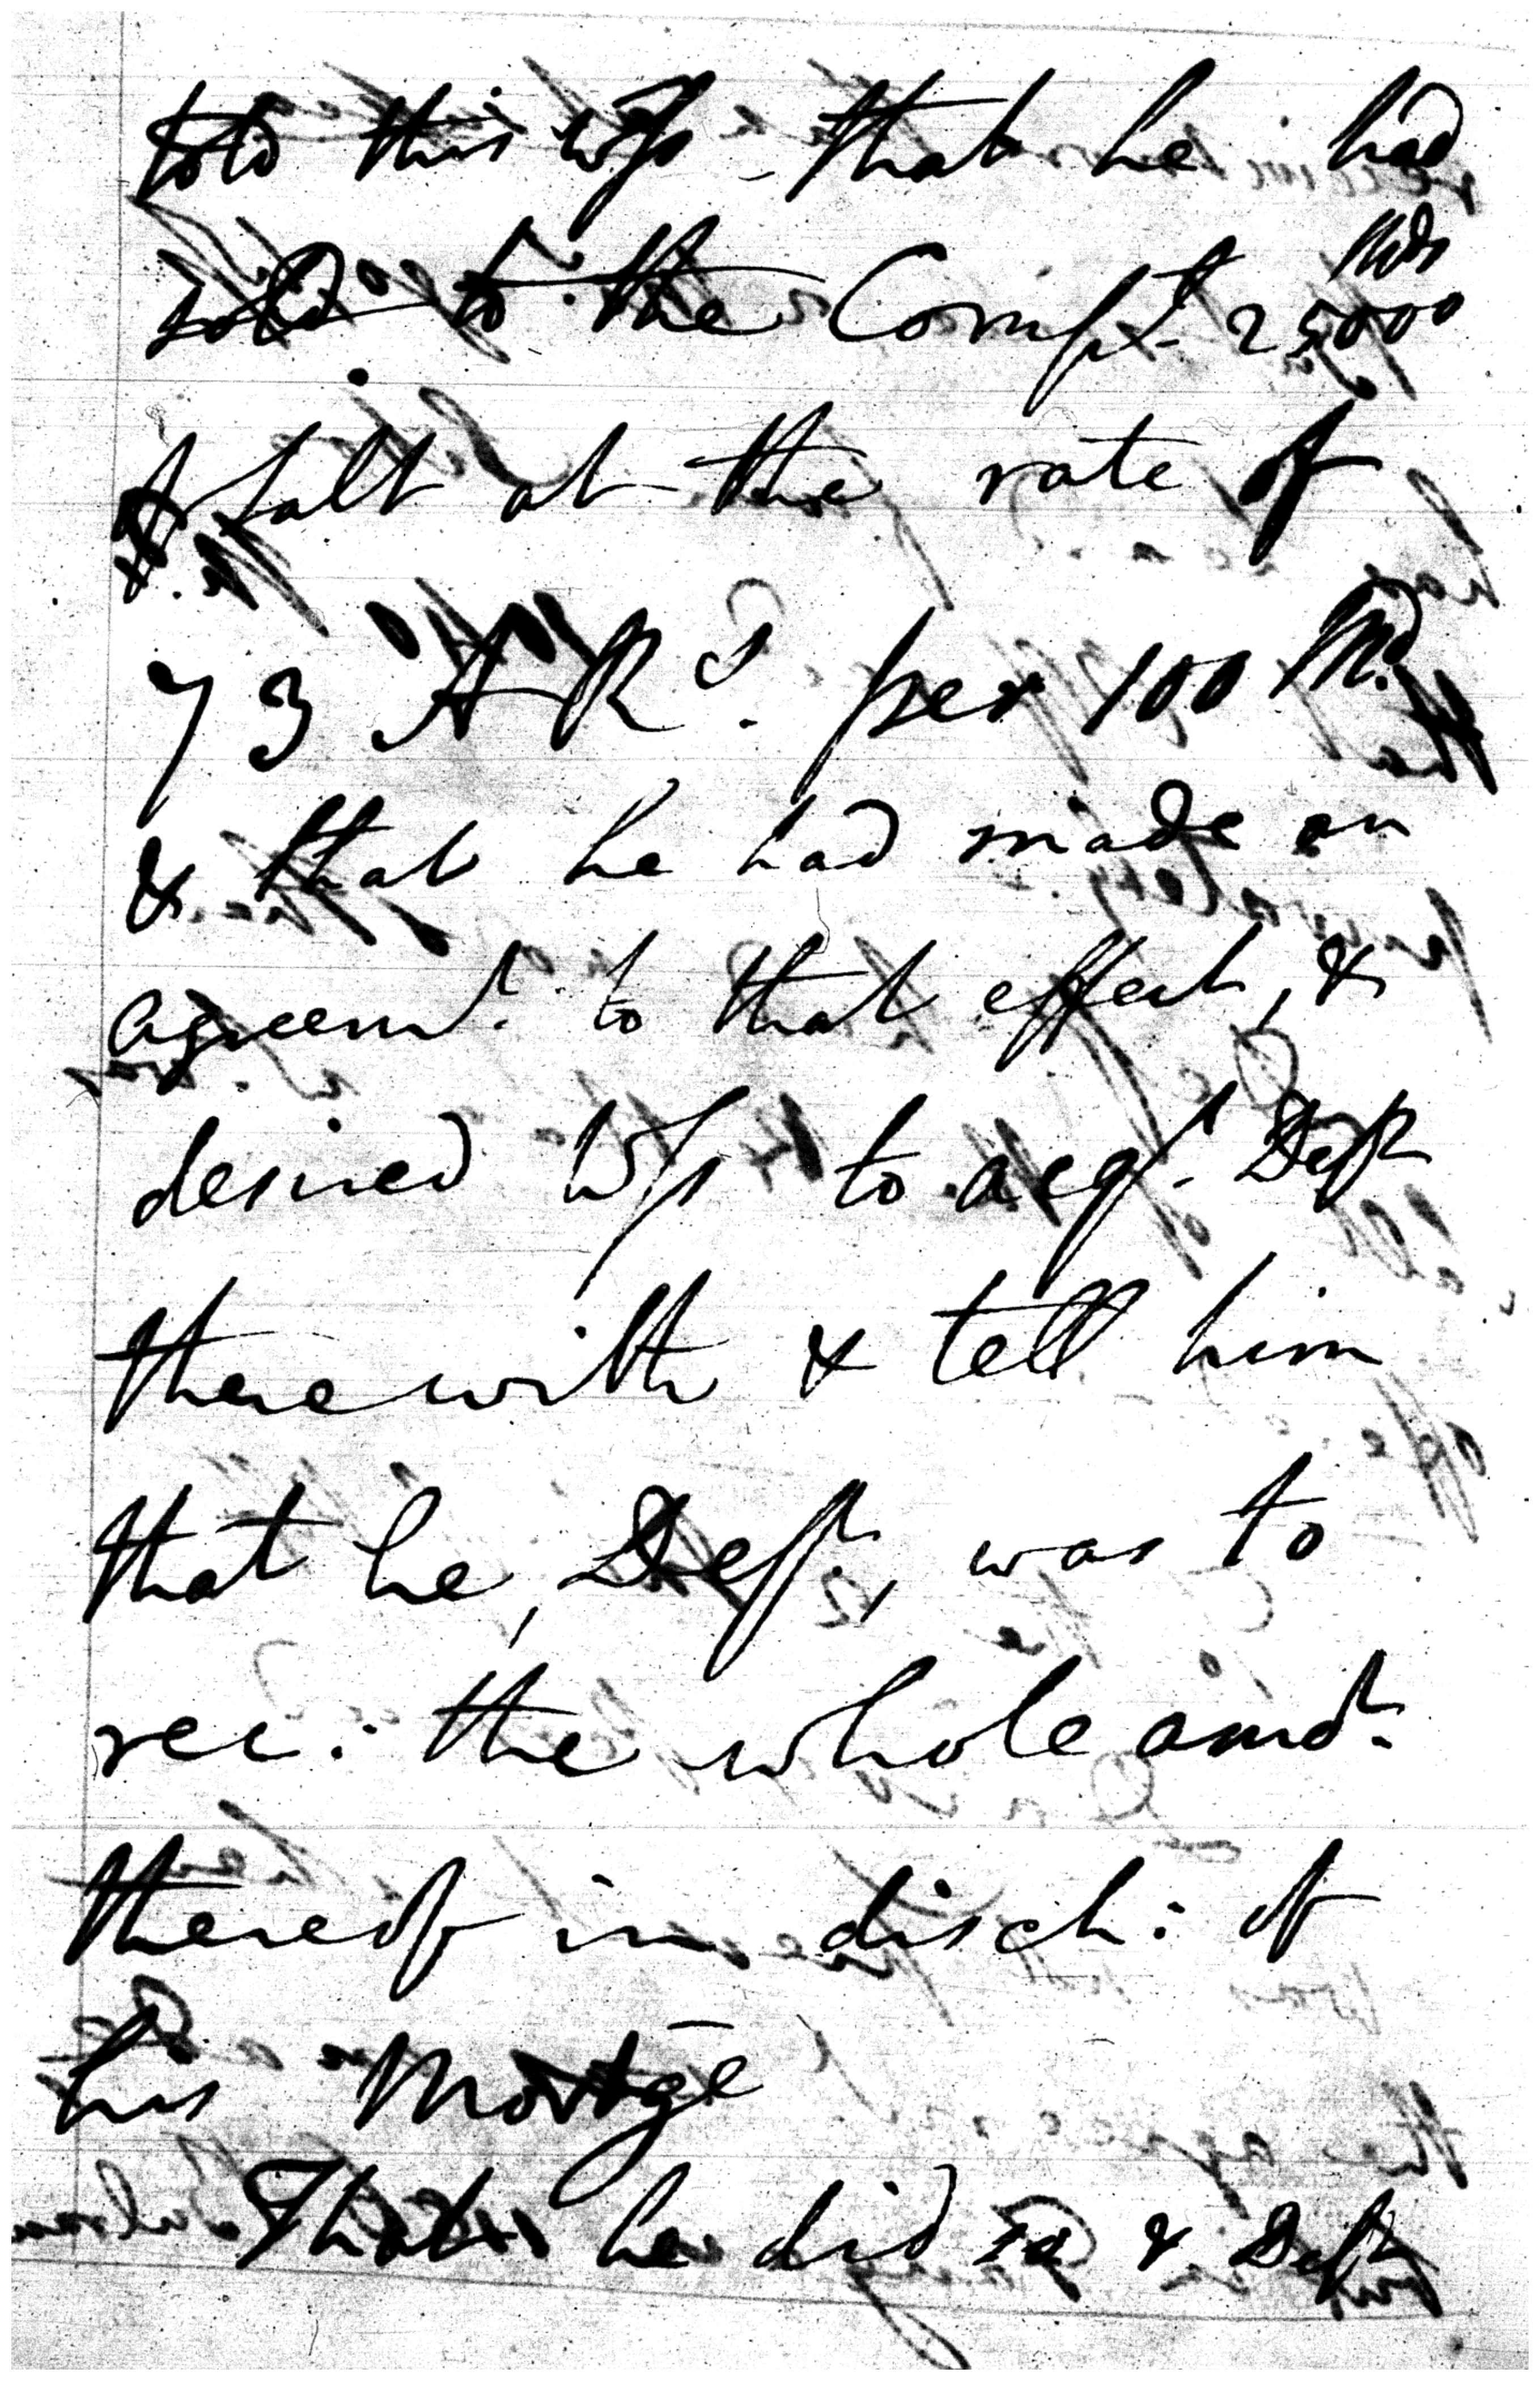 told this Wss - that he had
sold to the Compt. 25000 Mds
of salt at the rate of
73 ARs. per 100 Md.
& that he had made an
agreemt. to that effect, &
desired Wss to acqt. Deft
therewith & tell him
that he, Deft, was to
rec: the whole amot.
thereof in disch: of
his Mortge
That he did so & Deft